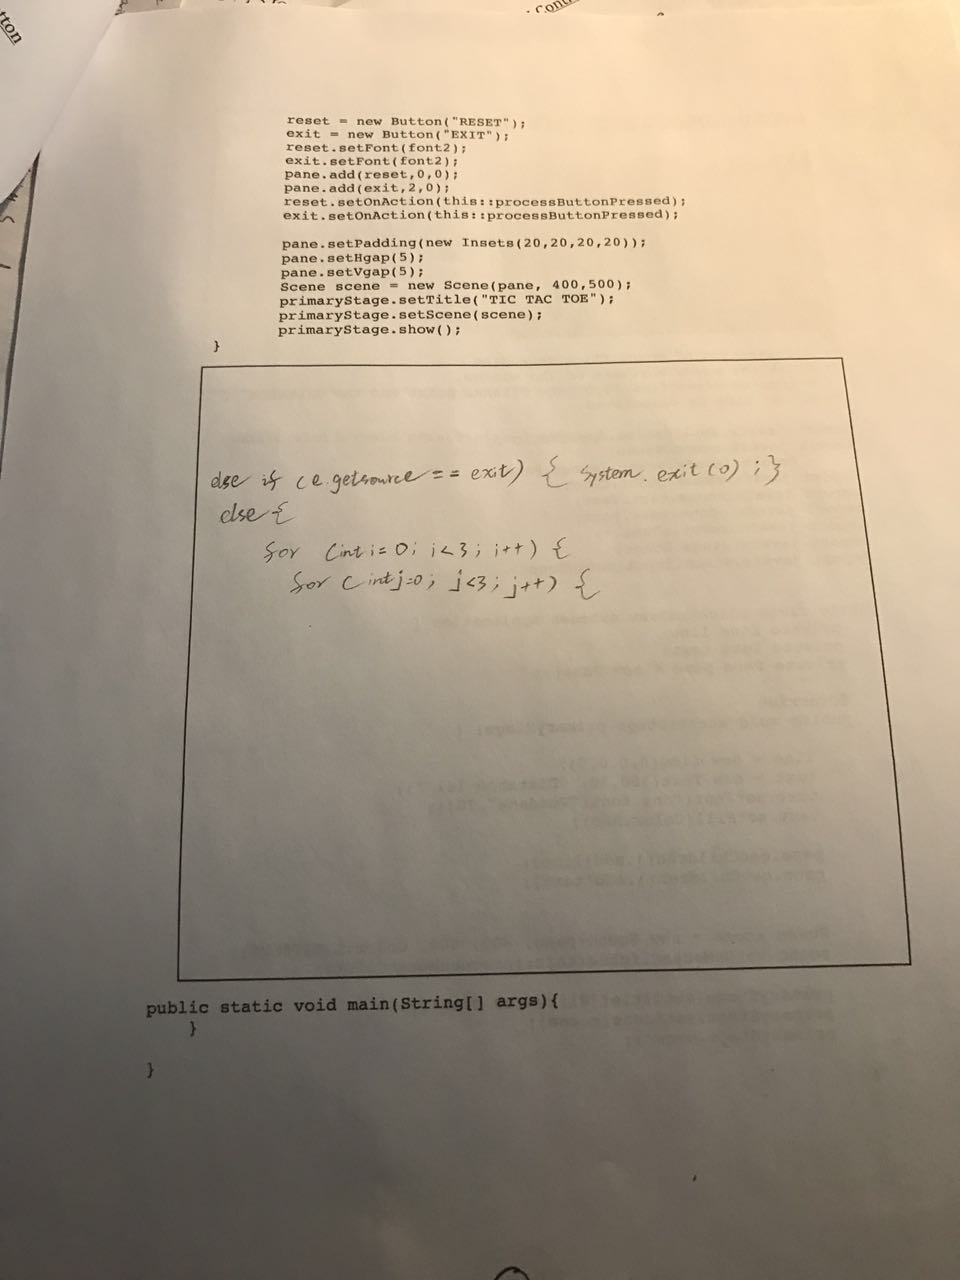 tton
reset = new Button("RESET");
exit = new Button("EXIT");
reset.setFont(font2);
exit.setFont(font2);
pane.add(reset,0,0);
pane.add(exit,2,0);
reset.setOnAction(this::processButtonPressed);
exit.setOnAction(this::processButtonPressed);
pane.setPadding(new Insets(20,20,20,20));
pane.setHgap(5);
pane.setVgap(5);
Scene scene = new Scene(pane, 400,500);
primaryStage.setTitle("TIC TAC TOE");
primaryStage.setScene(scene);
primaryStage.show();
}
else if (e.getsource == exit) { System.exit(0);}
else {
for (int i = 0; i<3; i++) {
for (int j=0; j<3; j++) {
public static void main(String[] args){
}
}